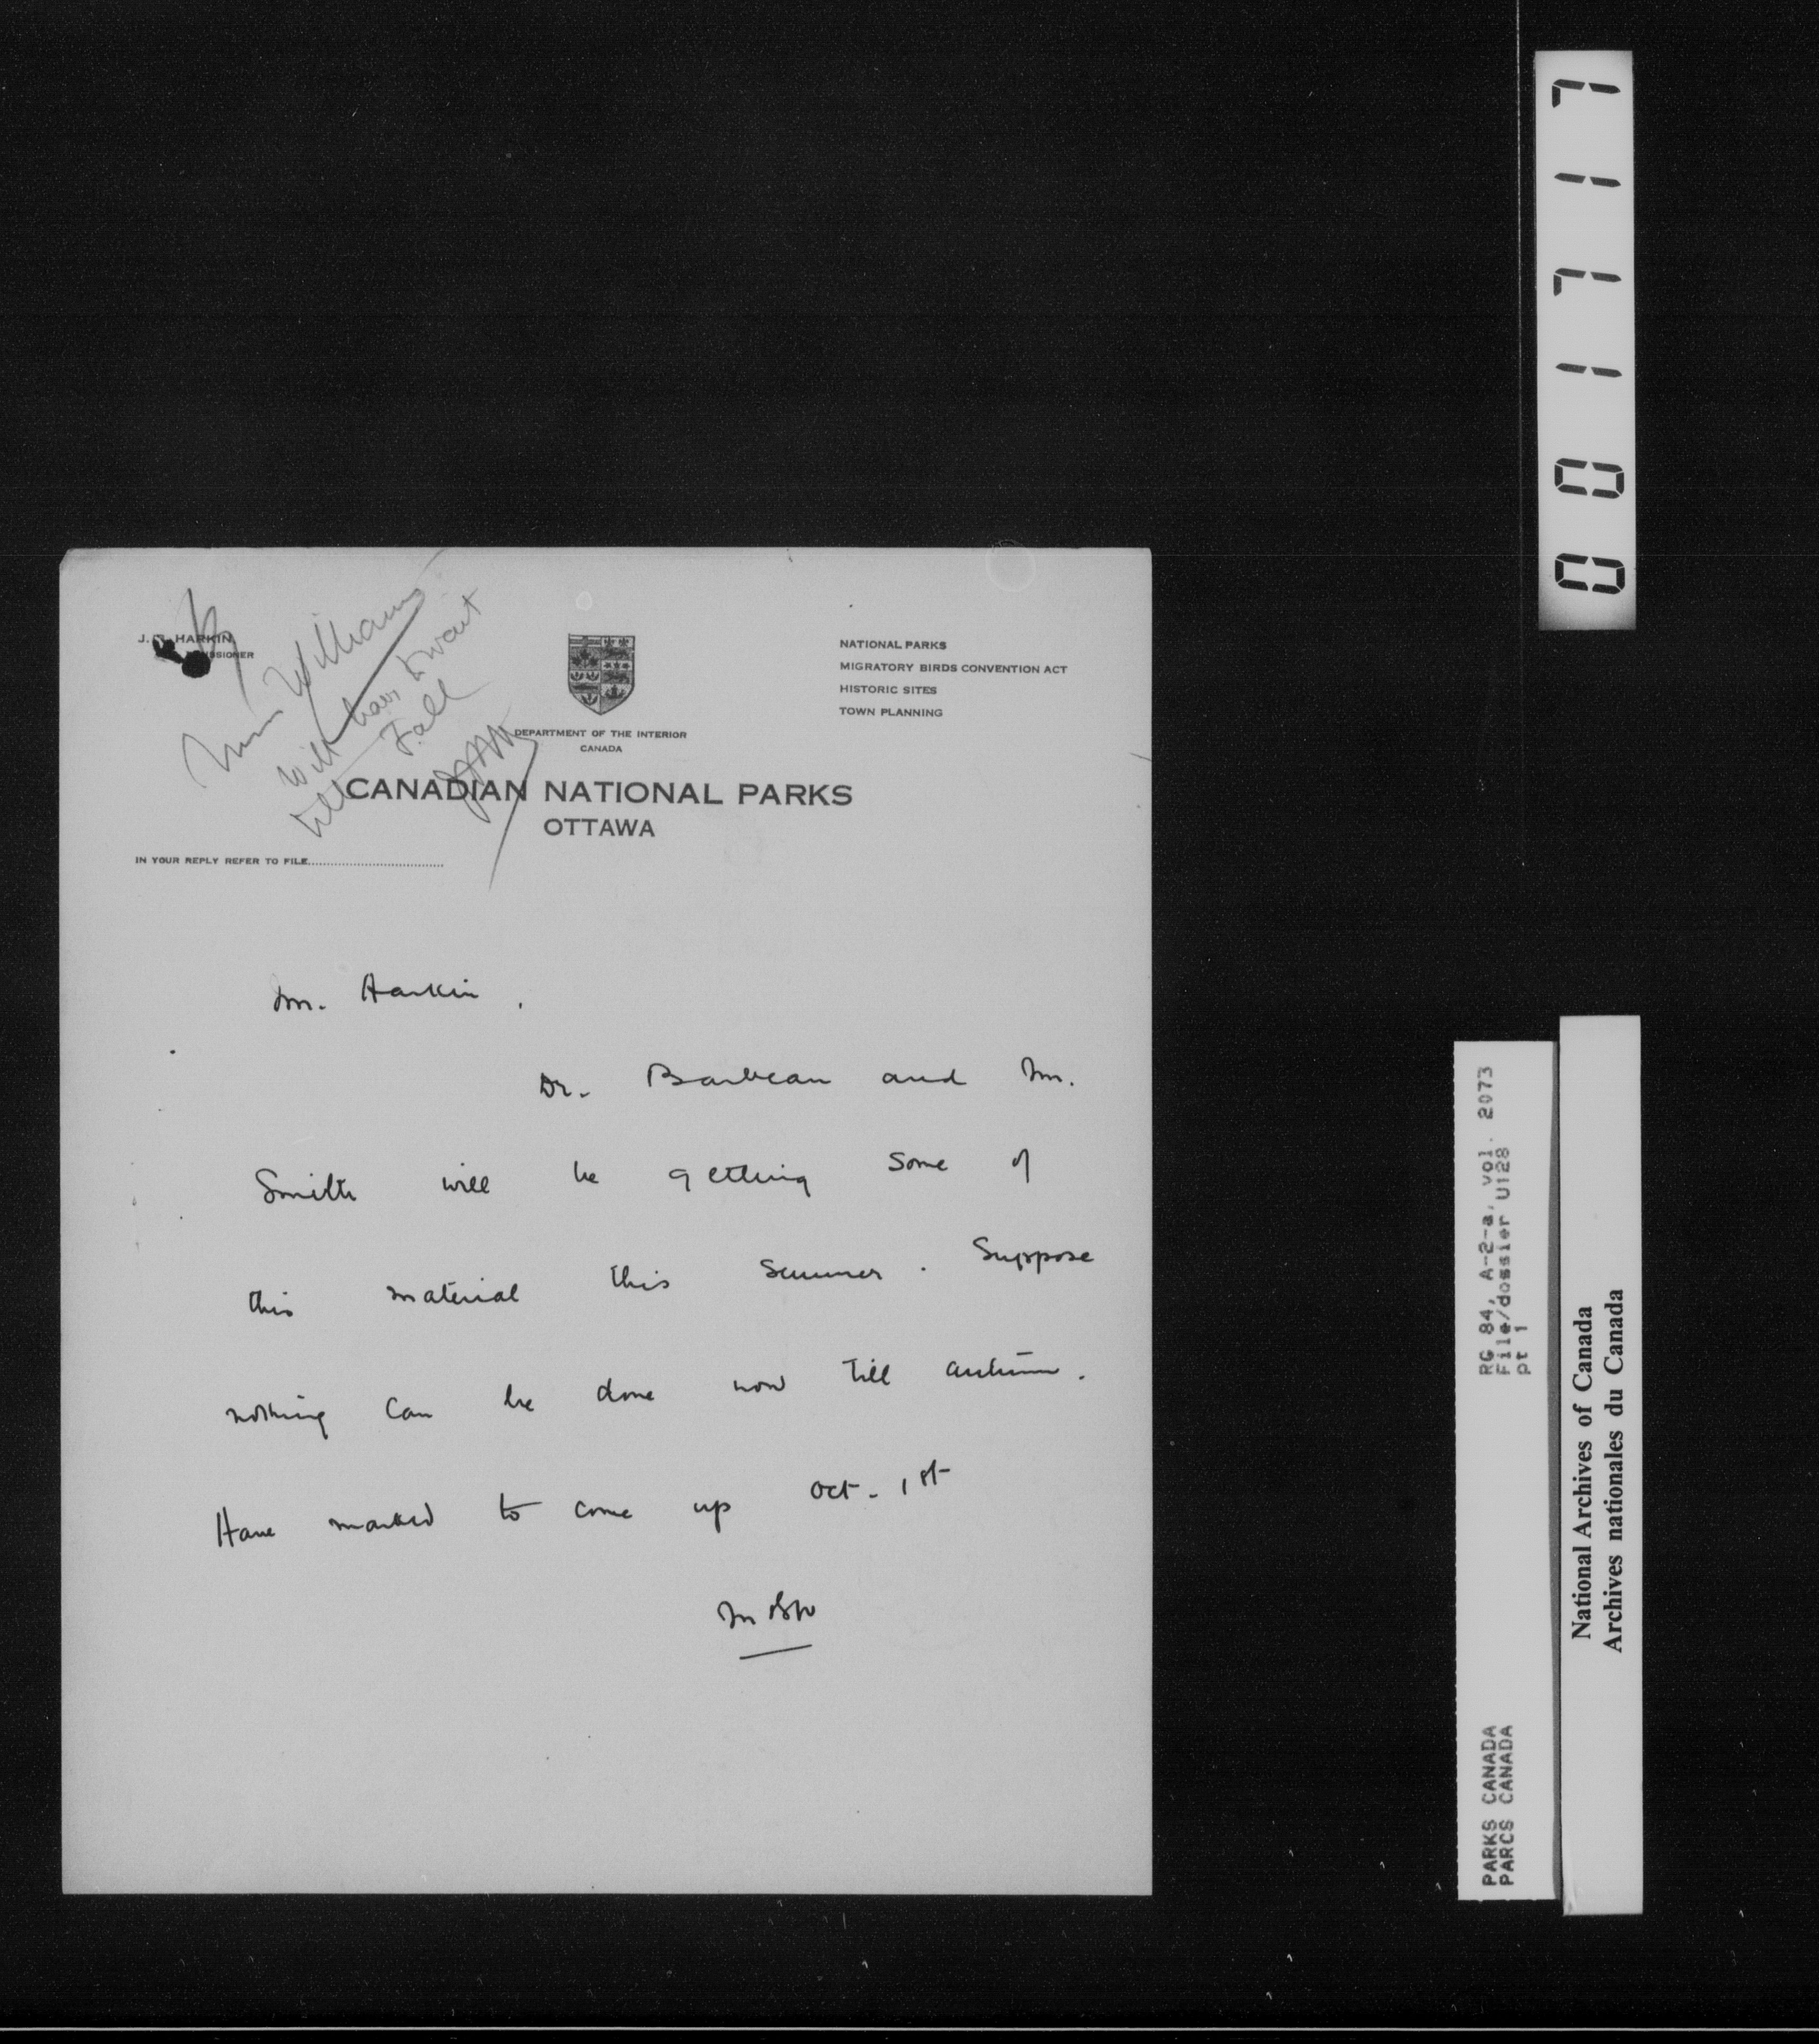 J. B. HARKIN
COMMISSIONER
Miss Williams
Will have to wait
till Fall
JBH
NATIONAL PARKS
MIGRATORY BIRDS CONVENTION ACT
HISTORIC SITES
TOWN PLANNING
DEPARTMENT OF THE INTERIOR
CANADA
CANADIAN NATIONAL PARKS
OTTAWA
IN YOUR REPLY REFER TO FILE
Mr. Harkin,
Dr. Barbeau and Mr.
Smith will be getting some of
this material this summer. Suppose
nothing can be done now till autumn.
Have marked to come up Oct. 1st
MBW
001717
PARKS CANADA RG 84, A-2-a, vol. 2073
PARCS CANADA File/dossier U128
pt 1
National Archives of Canada
Archives nationales du Canada